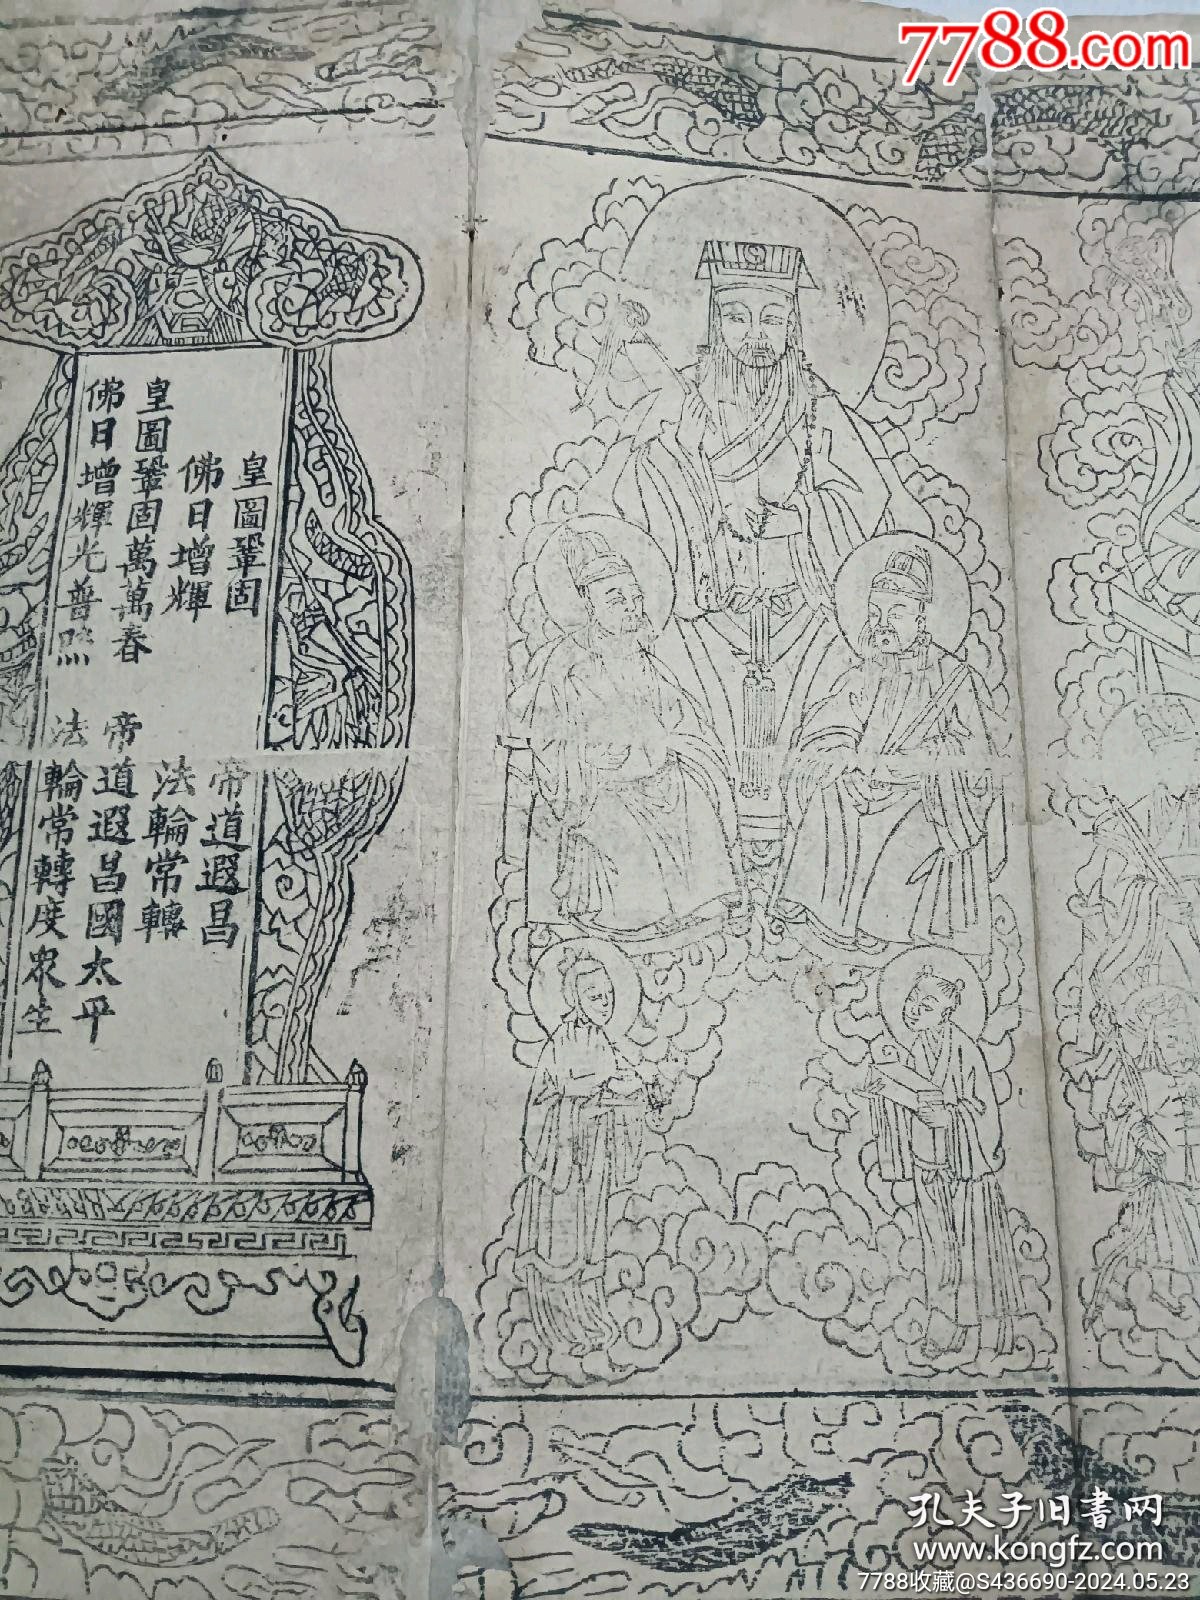 7788.com
皇圖鞏固　帝道遐昌
佛日增輝　法輪常轉
皇圖鞏固萬萬春　帝道遐昌國太平
佛日增輝光普照　法輪常轉度眾生
孔夫子旧書网
www.kongfz.com
7788收藏@S436690-2024.05.23